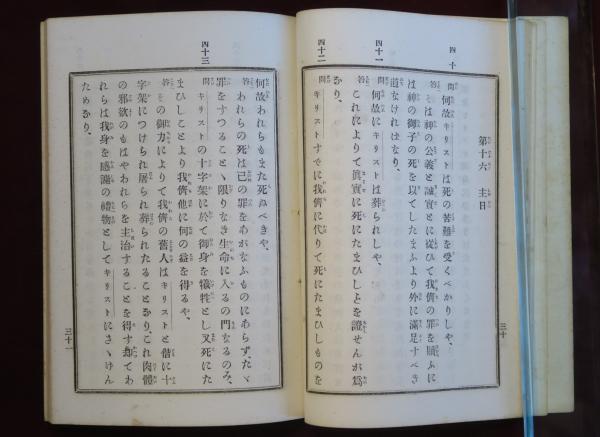 第十六　主日
四十
問　何故キリストは死の苦難を受くべかりしや、
答　そは神の公義と誠實とに從ひて我儕の罪を贖ふに
は神の御子の死を以てしたまふより外に滿足すべき
道なければなり、
四十一
問　何故にキリストは葬られしや、
答　これによりて眞實に死にたまひしことを證せんが爲
なり、
四十二
問　キリストすでに我儕に代りて死にたまひしものを
三十
何故われらもまた死ぬべきや、
答　われらの死は己の罪をあがなふものにあらず、たゞ
罪をすつることゝ限りなき生命に入るの門なるのみ、
四十三
問　キリストの十字架に於て御身を犧牲とし又死にた
まひしことより我儕他に何の益を得るや、
答　その御力によりて我儕の舊人はキリストと偕に十
字架につけられ屠られ葬られたることなり、これ肉體
の邪欲のもはやわれらを主治することを得ず却てわ
れらは我身を感謝の禮物としてキリストにさゝげん
ためなり、
三十一